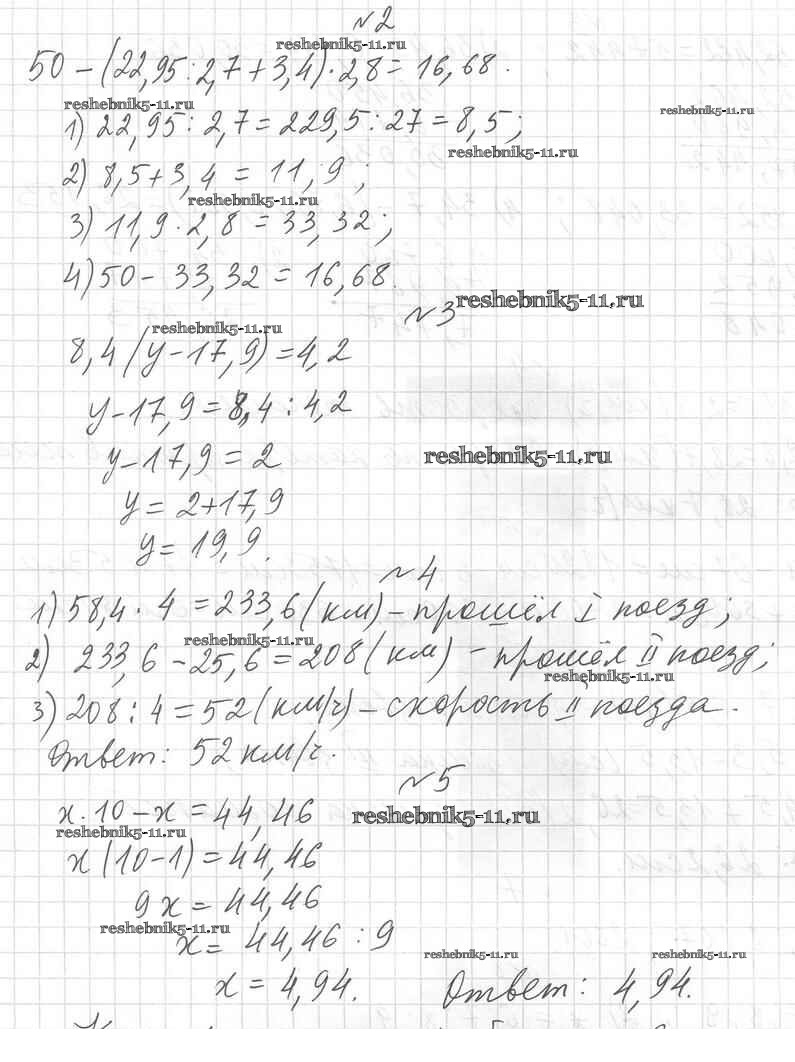 №2
reshebnik5-11.ru
50 - (22,95 : 2,7 + 3,4) · 2,8 = 16,68.
reshebnik5-11.ru
reshebnik5-11.ru
1) 22,95 : 2,7 = 229,5 : 27 = 8,5;
reshebnik5-11.ru
2) 8,5 + 3,4 = 11,9;
reshebnik5-11.ru
3) 11,9 · 2,8 = 33,32;
4) 50 - 33,32 = 16,68.
№3
reshebnik5-11.ru
reshebnik5-11.ru
8,4 (y - 17,9) = 4,2
y - 17,9 = 8,4 : 4,2
y - 17,9 = 2
reshebnik5-11.ru
y = 2 + 17,9
y = 19,9.
№4
1) 58,4 · 4 = 233,6 (км) - прошёл I поезд;
reshebnik5-11.ru
2) 233,6 - 25,6 = 208 (км) - прошёл II поезд;
reshebnik5-11.ru
3) 208 : 4 = 52 (км/ч) - скорость II поезда.
Ответ: 52 км/ч.
№5
x · 10 - x = 44,46
reshebnik5-11.ru
reshebnik5-11.ru
x (10 - 1) = 44,46
9x = 44,46
reshebnik5-11.ru
x = 44,46 : 9
reshebnik5-11.ru
reshebnik5-11.ru
x = 4,94. Ответ: 4,94.